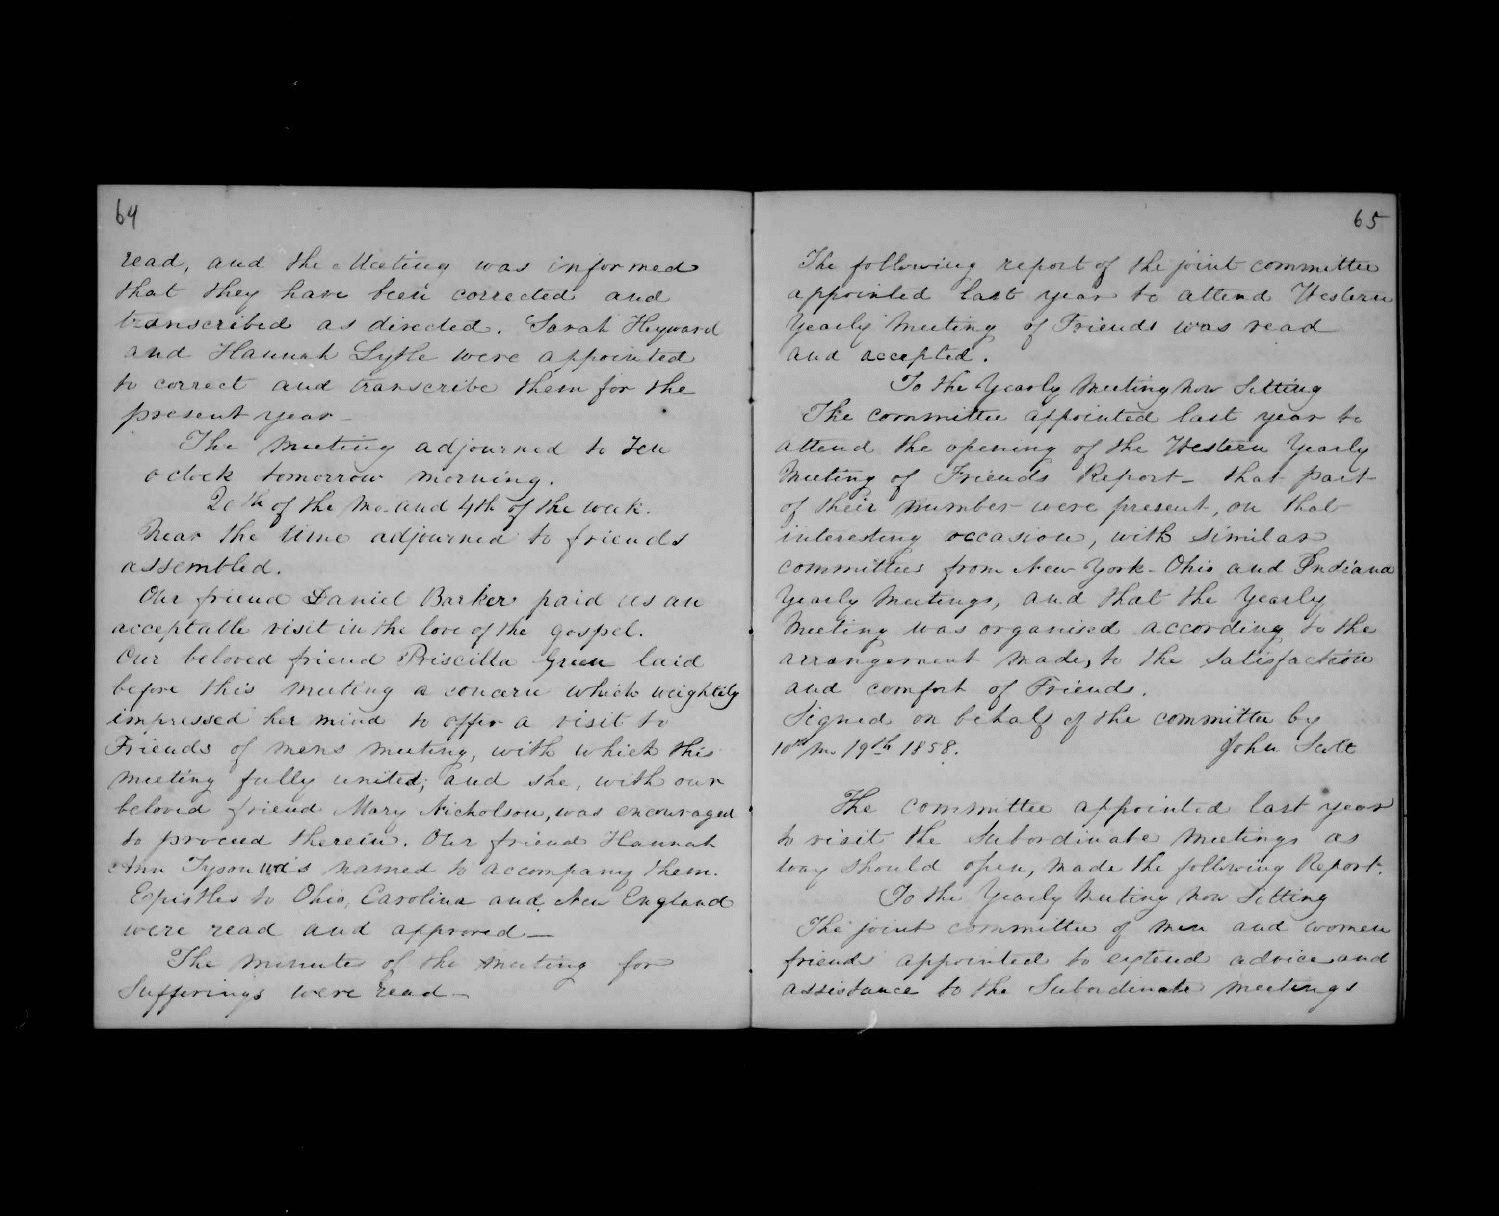 64
read, and the Meeting was informed
that they have been corrected and
transcribed as directed. Sarah Heyward
and Hannah Lytle were appointed
to correct and transcribe them for the
present year –
The meeting adjourned to Ten
o clock tomorrow morning.
20th of the mo. and 4th of the week.
Near the time adjourned to friends
assembled.
Our friend Daniel Barker paid us an
acceptable visit in the love of the gospel.
Our beloved friend Priscilla Green laid
before this meeting a concern which weightily
impressed her mind to offer a visit to
Friends of mens meeting, with which this
meeting fully united; and she, with our
beloved friend Mary Nicholson, was encouraged
to proceed therein. Our friend Hannah
Ann Tyson was named to accompany them.
Epistles to Ohio, Carolina and New England
were read and approved —
The minutes of the meeting for
Sufferings were read —
65
The following report of the joint committee
appointed last year to attend Western
Yearly Meeting of Friends was read
and accepted.
To the Yearly Meeting now Sitting
The committee appointed last year to
attend the opening of the Western Yearly
Meeting of Friends Report – that part
of their number were present, on that
interesting occasion, with similar
committees from New York – Ohio and Indiana
Yearly Meetings, and that the Yearly
Meeting was organised according to the
arrangement made, to the satisfaction
and comfort of Friends.
Signed on behalf of the committee by
10th mo 19th 1858. John Scott
The committee appointed last year
to visit the Subordinate meetings as
way should open, made the following Report.
To the Yearly Meeting now Sitting
The joint committee of men and women
friends appointed to extend advice and
assistance to the Subordinate meetings